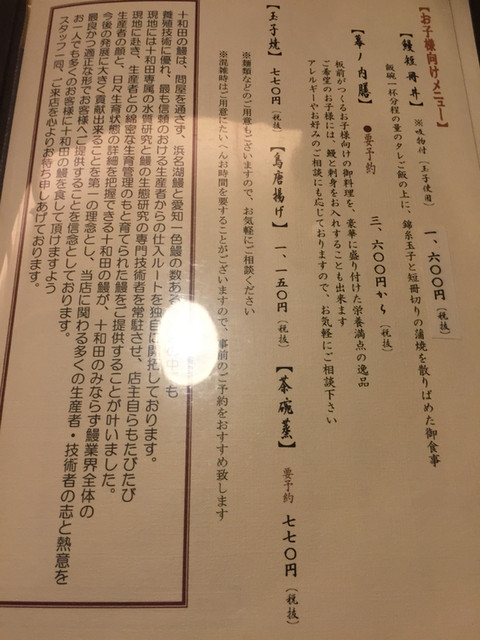 【お子様向けメニュー】
【鰻短冊丼】 ※吸物付（玉子使用） 一、六〇〇円（税抜）
飯碗一杯分程の量のタレご飯の上に、錦糸玉子と短冊切りの蒲焼を散りばめた御食事
【幕ノ内膳】 ●要予約 三、六〇〇円から（税抜）
板前がつくるお子様向けの御料理を、豪華に盛り付けた栄養満点の逸品
ご希望のお子様には、鰻と刺身をお入れすることも出来ます
アレルギーやお好みのご相談にも応じておりますので、お気軽にご相談下さい
【玉子焼】 七七〇円（税抜） 【鳥唐揚げ】 一、一五〇円（税抜） 【茶碗蒸】 要予約 七七〇円（税抜）
※麺類などのご用意もございますので、お気軽にご相談ください
※混雑時はご用意にたいへんお時間を要することがございますので、事前のご予約をおすすめ致します
十和田の鰻は、問屋を通さず、浜名湖鰻と愛知一色鰻の数ある も
養殖技術に優れ、最も信頼のおける生産者からの仕入ルートを独自に開拓しております。
現地には十和田専属の水質研究と鰻の生態研究の専門技術者を常駐させ、店主自らもたびたび
現地に赴き、生産者との綿密な生育管理のもと育てられた鰻をご提供することが叶いました。
生産者の顔と、日々生育状態の詳細を把握できる十和田の鰻が、十和田のみならず鰻業界全体の
今後の発展に大きく貢献出来ることを第一の理念とし、当店に関わる多くの生産者・技術者の志と熱意を
最良かつ適正な形でお客様へご提供することを信念としております。
お一人でも多くのお客様に十和田の鰻を食して頂けますよう
スタッフ一同、ご来店を心よりお待ち申しあげております。